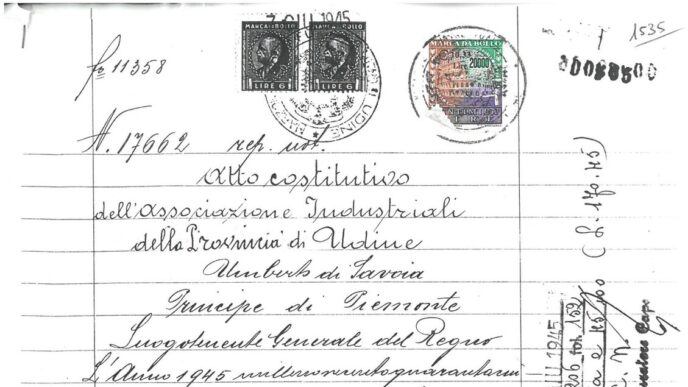 7 GIU 1945
1535
MARCA DA BOLLO
MARCA DA BOLLO
MARCA DA BOLLO
20000
LIRE 6
LIRE 6
UDINE
11358
N. 17662 rep. not.
Atto costitutivo
dell'Associazione Industriali
della Provincia di Udine
Umberto di Savoia
Principe di Piemonte
Luogotenente Generale del Regno
L'Anno 1945 millenovecentoquarantacin
(L. 170.45)
1945
152